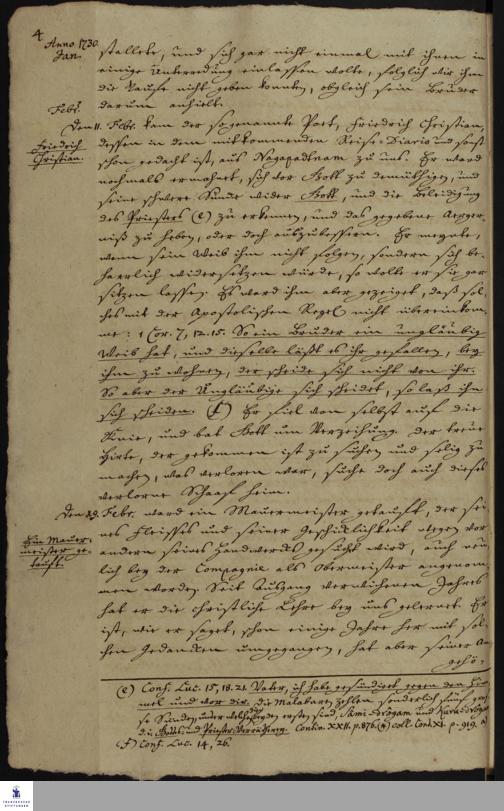 4
Anno 1730.
Jan.
stellete, und sich gar nicht einmal mit ihnen in
einige Unterredung einlassen wolte, folglich wir ihm
die Taufe nicht geben konnten, obgleich sein Bruder
darum anhielt.
Febr.
Den 11. Febr. kam der so genannte Poet, Friedrich Christian,
Friedrich
Christian.
dessen in dem mitkommenden Reise-Diario und sonst
schon gedacht ist, aus Nagapadnam zu uns. Er ward
nochmals ermahnet, sich vor Gott zu demüthigen, und
seine schwere Sünde wider Gott, und die Beleidigung
des Priesters (e) zu erkennen, und das gegebene Aerger-
niß zu heben, oder doch auszubessern. Er meynte,
wenn sein Weib ihm nicht folgen, sondern sich be-
harrlich widersetzen würde, so wolte er sie gar
sitzen lassen: Es ward ihm aber gezeiget, daß sol-
ches mit der Apostolischen Regel nicht übereinkom-
me: 1 Cor. 7, 12-15. So ein Bruder ein ungläubig
Weib hat, und dieselbe läßt es ihr gefallen, bey
ihm zu wohnen, der scheide sich nicht von ihr.
So aber der Ungläubige sich scheidet, so laß ihn
sich scheiden. (f) Er fiel von selbst auf die
Knie, und bat Gott um Verzeihung. Der treue
Hirte, der gekommen ist zu suchen und selig zu
machen, was verloren war, suche doch auch dieses
verlorne Schaaf heim.
Den 29. Febr. ward ein Mauermeister getauft, der sei-
Ein Mauer-
meister ge-
tauft.
nes Fleisses und seiner Geschicklichkeit wegen vor
andern seines Handwerks gesucht wird, auch neu-
lich bey der Compagnie als Obermeister angenom-
men worden. Seit Ausgang verwichenen Jahres
hat er die christliche Lehre bey uns gelernet. Er
ist, wie er saget, schon einige Jahre her mit sol-
chen Gedancken umgegangen, hat aber seiner An-
gehö-
(e) Conf. Luc. 15, 18. 21. Vater, ich habe gesündiget gegen den Him-
mel und vor dir. die Malabaren zehlen sonderlich fünf gros-
se Sünden, unter welchen die ersten sind,
die Gottes- und Priester-Verachtung. Contin. XXII. p. 876. coll. Cont. XI. p. 919.
(f) Conf. Luc. 14, 26.
FRANCKESCHE
STIFTUNGEN